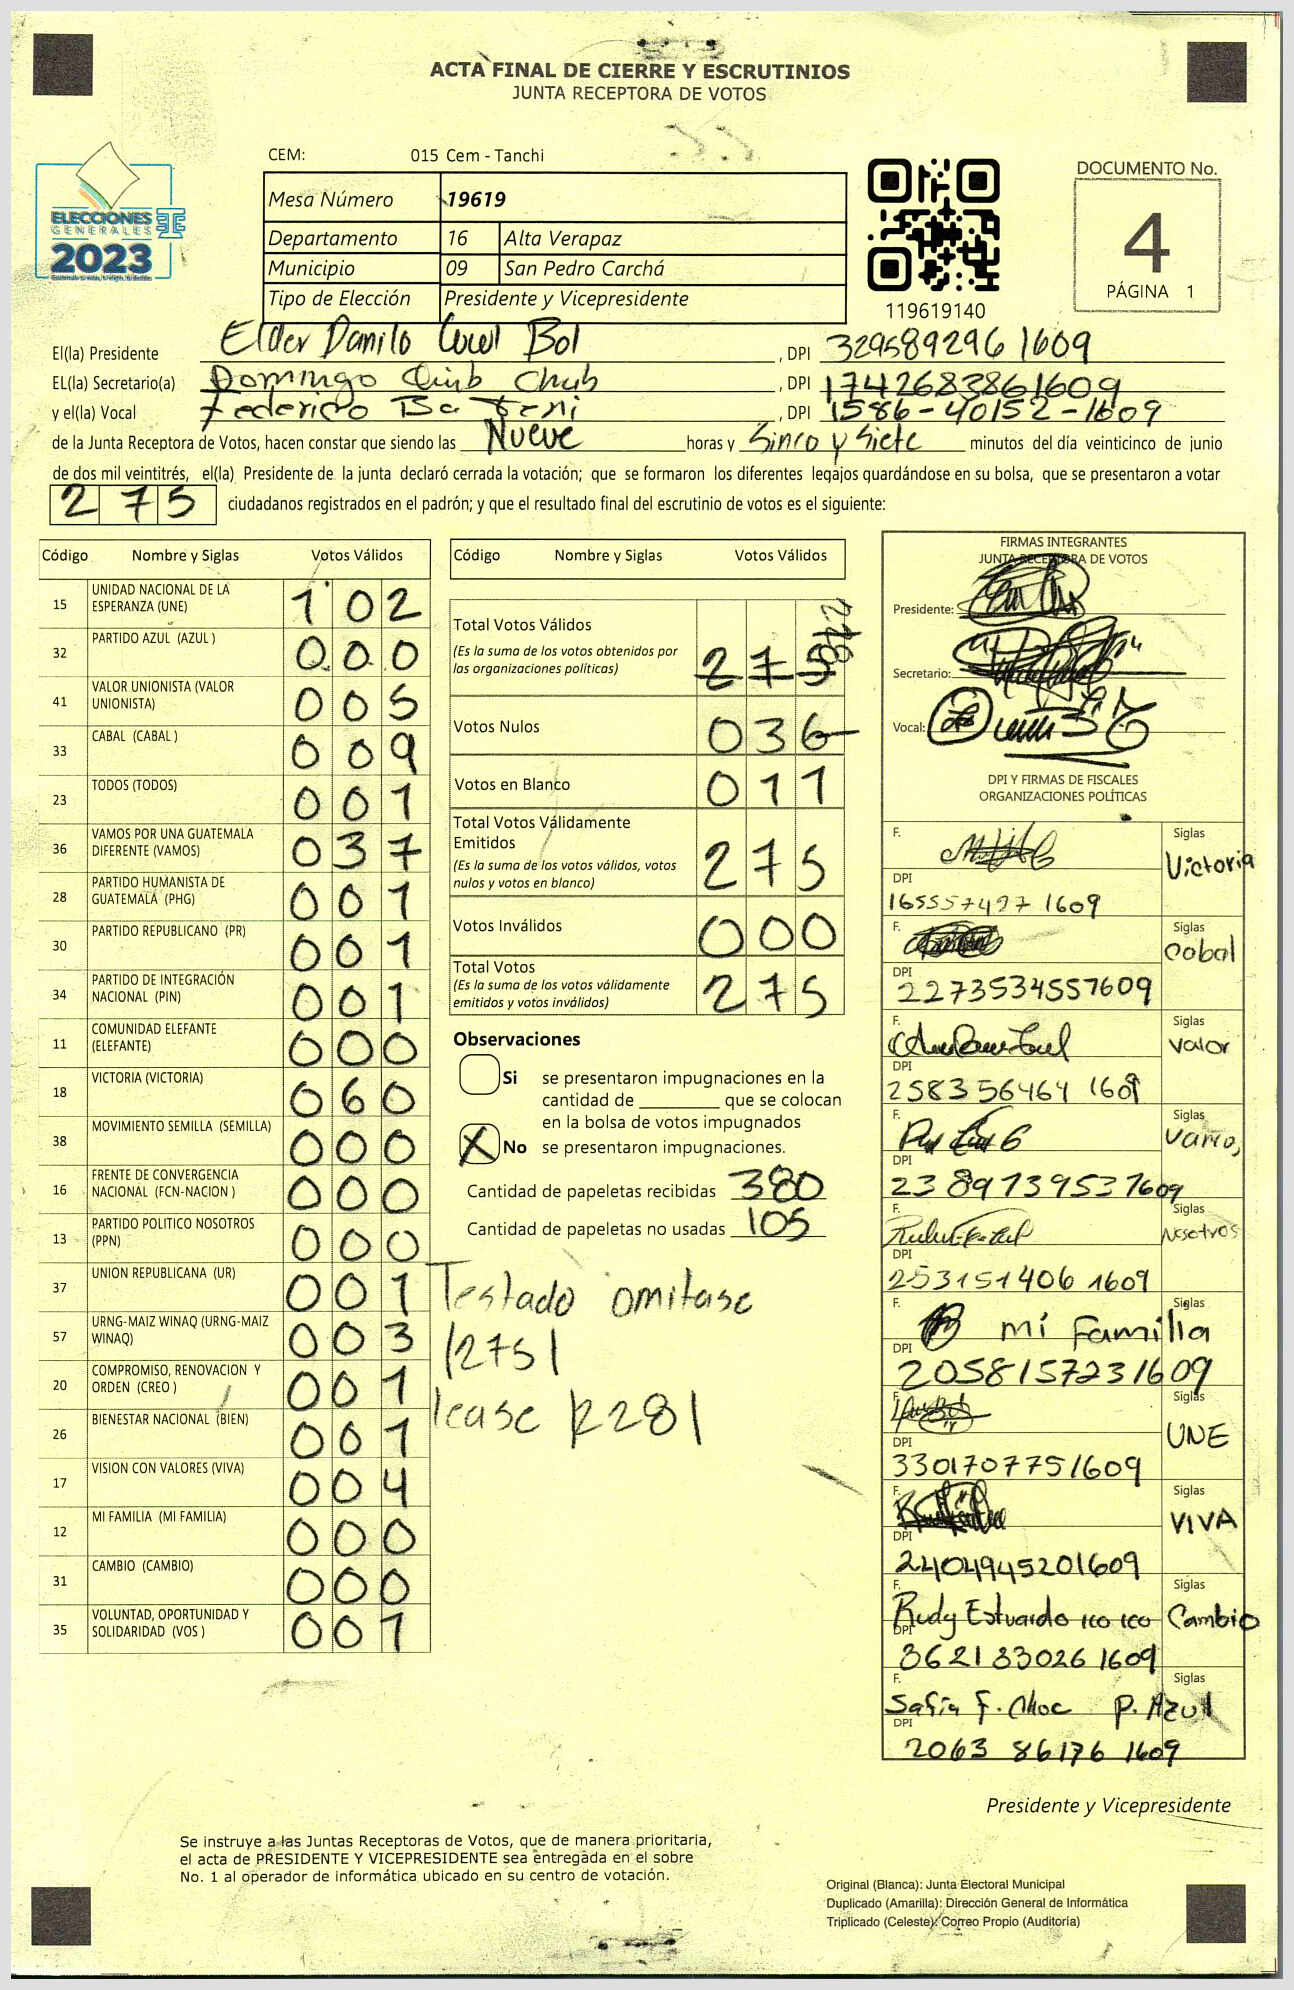 ACTA FINAL DE CIERRE Y ESCRUTINIOS
JUNTA RECEPTORA DE VOTOS
CEM: 015 Cem - Tanchi
ELECCIONES
GENERALES
2023
Mesa Número 19619
Departamento 16 Alta Verapaz
Municipio 09 San Pedro Carchá
Tipo de Elección Presidente y Vicepresidente
119619140
DOCUMENTO No.
4
PÁGINA 1
El(la) Presidente Elder Danilo Cucul Bol , DPI 329589296 1609
EL(la) Secretario(a) Domingo Quib Chub , DPI 1742683861609
y el(la) Vocal Federico Ba , DPI 1586-40152-1609
de la Junta Receptora de Votos, hacen constar que siendo las Nueve horas y Sinco y Siete minutos del día veinticinco de junio
de dos mil veintitrés, el(la) Presidente de la junta declaró cerrada la votación; que se formaron los diferentes legajos guardándose en su bolsa, que se presentaron a votar
275 ciudadanos registrados en el padrón; y que el resultado final del escrutinio de votos es el siguiente:
Código Nombre y Siglas Votos Válidos
15 UNIDAD NACIONAL DE LA ESPERANZA (UNE) 102
32 PARTIDO AZUL (AZUL ) 000
41 VALOR UNIONISTA (VALOR UNIONISTA) 005
33 CABAL (CABAL ) 009
23 TODOS (TODOS) 001
36 VAMOS POR UNA GUATEMALA DIFERENTE (VAMOS) 037
28 PARTIDO HUMANISTA DE GUATEMALA (PHG) 001
30 PARTIDO REPUBLICANO (PR) 001
34 PARTIDO DE INTEGRACIÓN NACIONAL (PIN) 001
11 COMUNIDAD ELEFANTE (ELEFANTE) 000
18 VICTORIA (VICTORIA) 060
38 MOVIMIENTO SEMILLA (SEMILLA) 000
16 FRENTE DE CONVERGENCIA NACIONAL (FCN-NACION ) 000
13 PARTIDO POLITICO NOSOTROS (PPN) 000
37 UNION REPUBLICANA (UR) 001
57 URNG-MAIZ WINAQ (URNG-MAIZ WINAQ) 003
20 COMPROMISO, RENOVACION Y ORDEN (CREO ) 001
26 BIENESTAR NACIONAL (BIEN) 001
17 VISION CON VALORES (VIVA) 004
12 MI FAMILIA (MI FAMILIA) 000
31 CAMBIO (CAMBIO) 000
35 VOLUNTAD, OPORTUNIDAD Y SOLIDARIDAD (VOS ) 001
Código Nombre y Siglas Votos Válidos
Total Votos Válidos 275
(Es la suma de los votos obtenidos por
las organizaciones políticas)
Votos Nulos 036
Votos en Blanco 011
Total Votos Válidamente
Emitidos 275
(Es la suma de los votos válidos, votos
nulos y votos en blanco)
Votos Inválidos 000
Total Votos 275
(Es la suma de los votos válidamente
emitidos y votos inválidos)
Observaciones
Si se presentaron impugnaciones en la
cantidad de ________ que se colocan
en la bolsa de votos impugnados
X No se presentaron impugnaciones.
Cantidad de papeletas recibidas 380
Cantidad de papeletas no usadas 105
Testado omitase
|275|
lease |228|
FIRMAS INTEGRANTES
JUNTA RECEPTORA DE VOTOS
Presidente:
Secretario:
Vocal:
DPI Y FIRMAS DE FISCALES
ORGANIZACIONES POLÍTICAS
F. Siglas Victoria
DPI 165557427 1609
F. Siglas Cabal
DPI 2273534557609
F. Siglas Valor
DPI 258356464 1609
F. Siglas
DPI 2389739537609
F. Siglas Nosotros
DPI 253151406 1609
F. Siglas mi Familia
DPI 2058157231609
F. Siglas UNE
DPI 3301707751609
F. Siglas VIVA
DPI 2404945201609
F. Rudy Estuardo Ico Ico Siglas Cambio
DPI 362183026 1609
F. Safia F. Choc Siglas P. Azul
DPI 2063 86176 1609
Presidente y Vicepresidente
Se instruye a las Juntas Receptoras de Votos, que de manera prioritaria,
el acta de PRESIDENTE Y VICEPRESIDENTE sea entregada en el sobre
No. 1 al operador de informática ubicado en su centro de votación.
Original (Blanca): Junta Electoral Municipal
Duplicado (Amarilla): Dirección General de Informática
Triplicado (Celeste): Correo Propio (Auditoría)